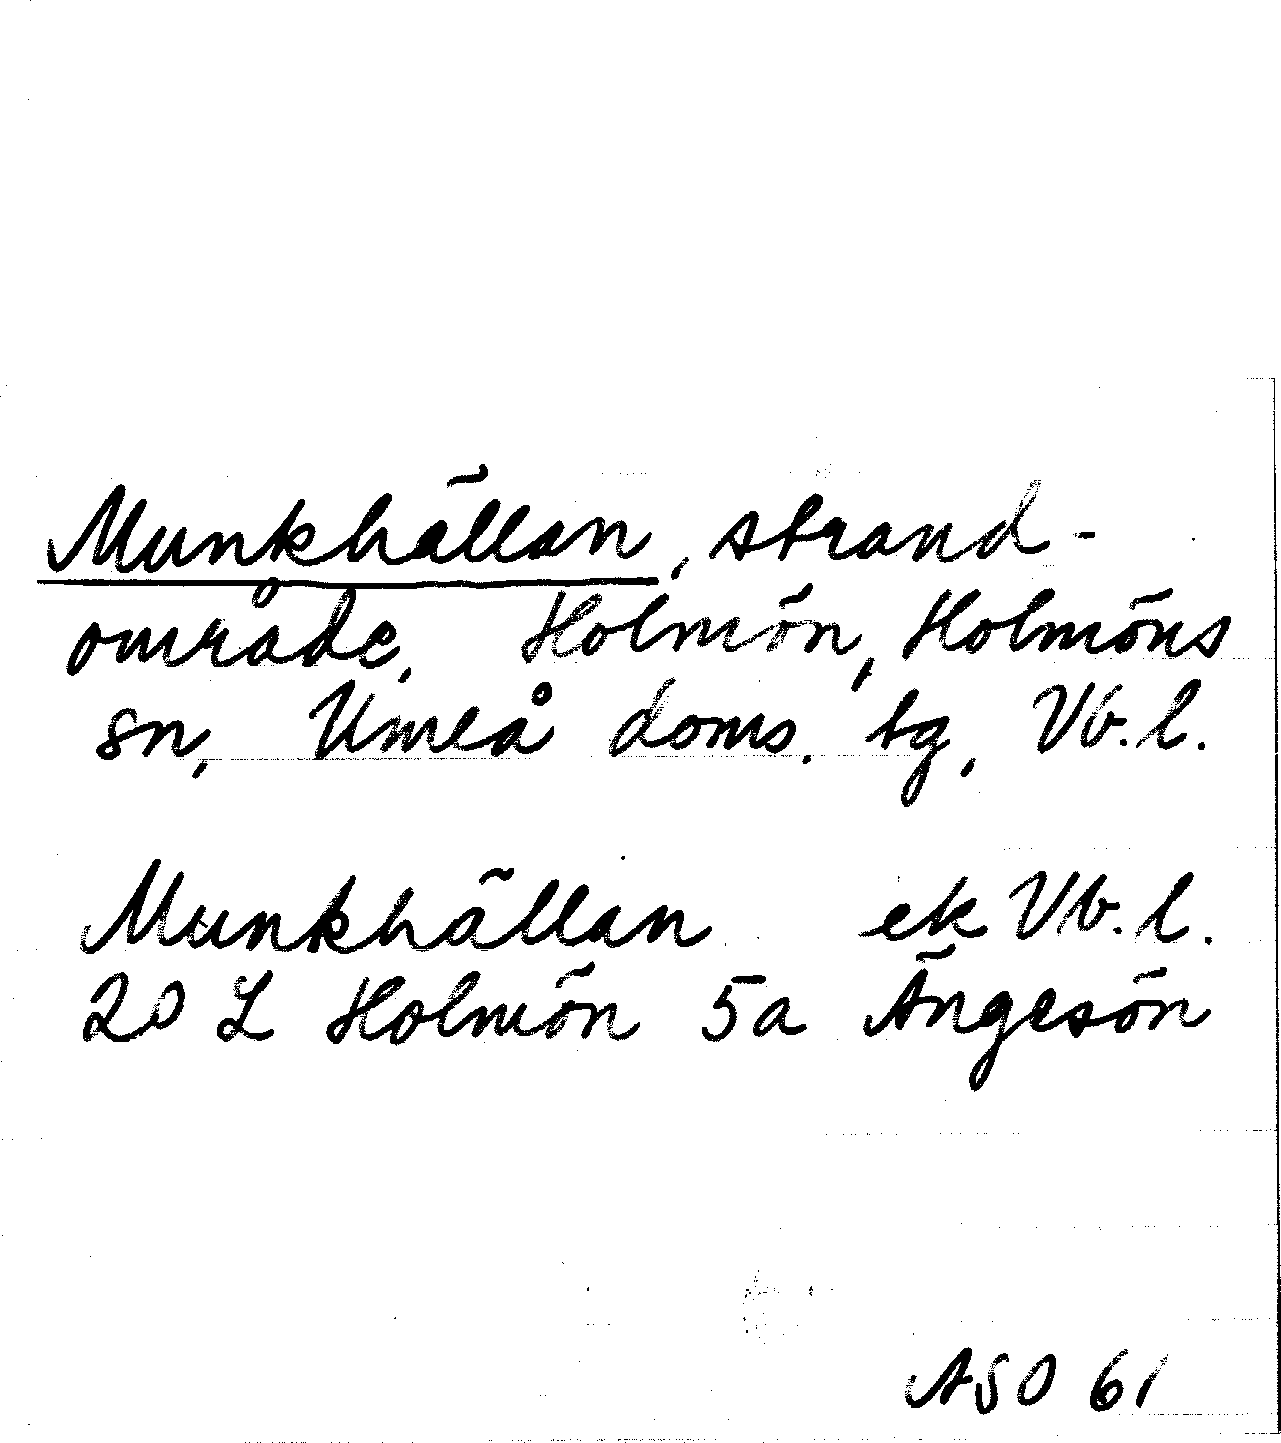 Munkhällan, strand-
område, Holmön, Holmöns
sn, Umeå doms. tg, Vb.l.
Munkhällan ek Vb.l.
20 L Holmön 5a Ängesön
ASO 61